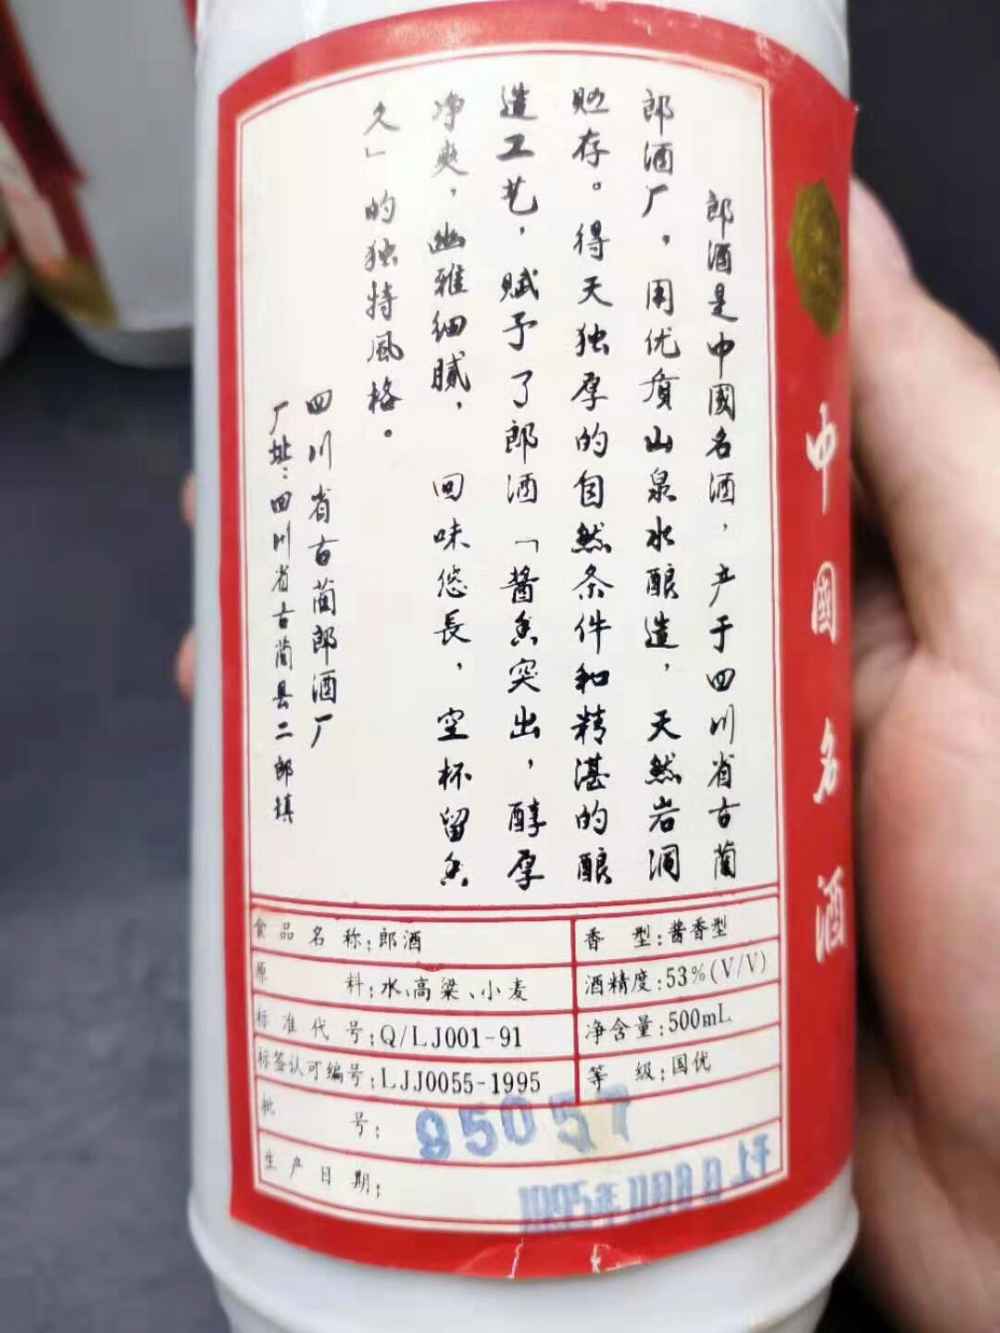 郎酒是中國名酒，产于四川省古蔺
郎酒厂，用优质山泉水酿造，天然岩洞
贮存。得天独厚的自然条件和精湛的酿
造工艺，赋予了郎酒「酱香突出，醇厚
净爽，幽雅细腻，回味悠長，空杯留香
久」的独特風格。
四川省古蔺郎酒厂
厂址：四川省古蔺县二郎镇
中國名酒
食品名称：郎酒
香型：酱香型
原料：水、高粱、小麦
酒精度：53%(V/V)
标准代号：Q/LJ001-91
净含量：500mL
标签认可编号：LJJ0055-1995
等级：国优
批号：95057
生产日期：1995年